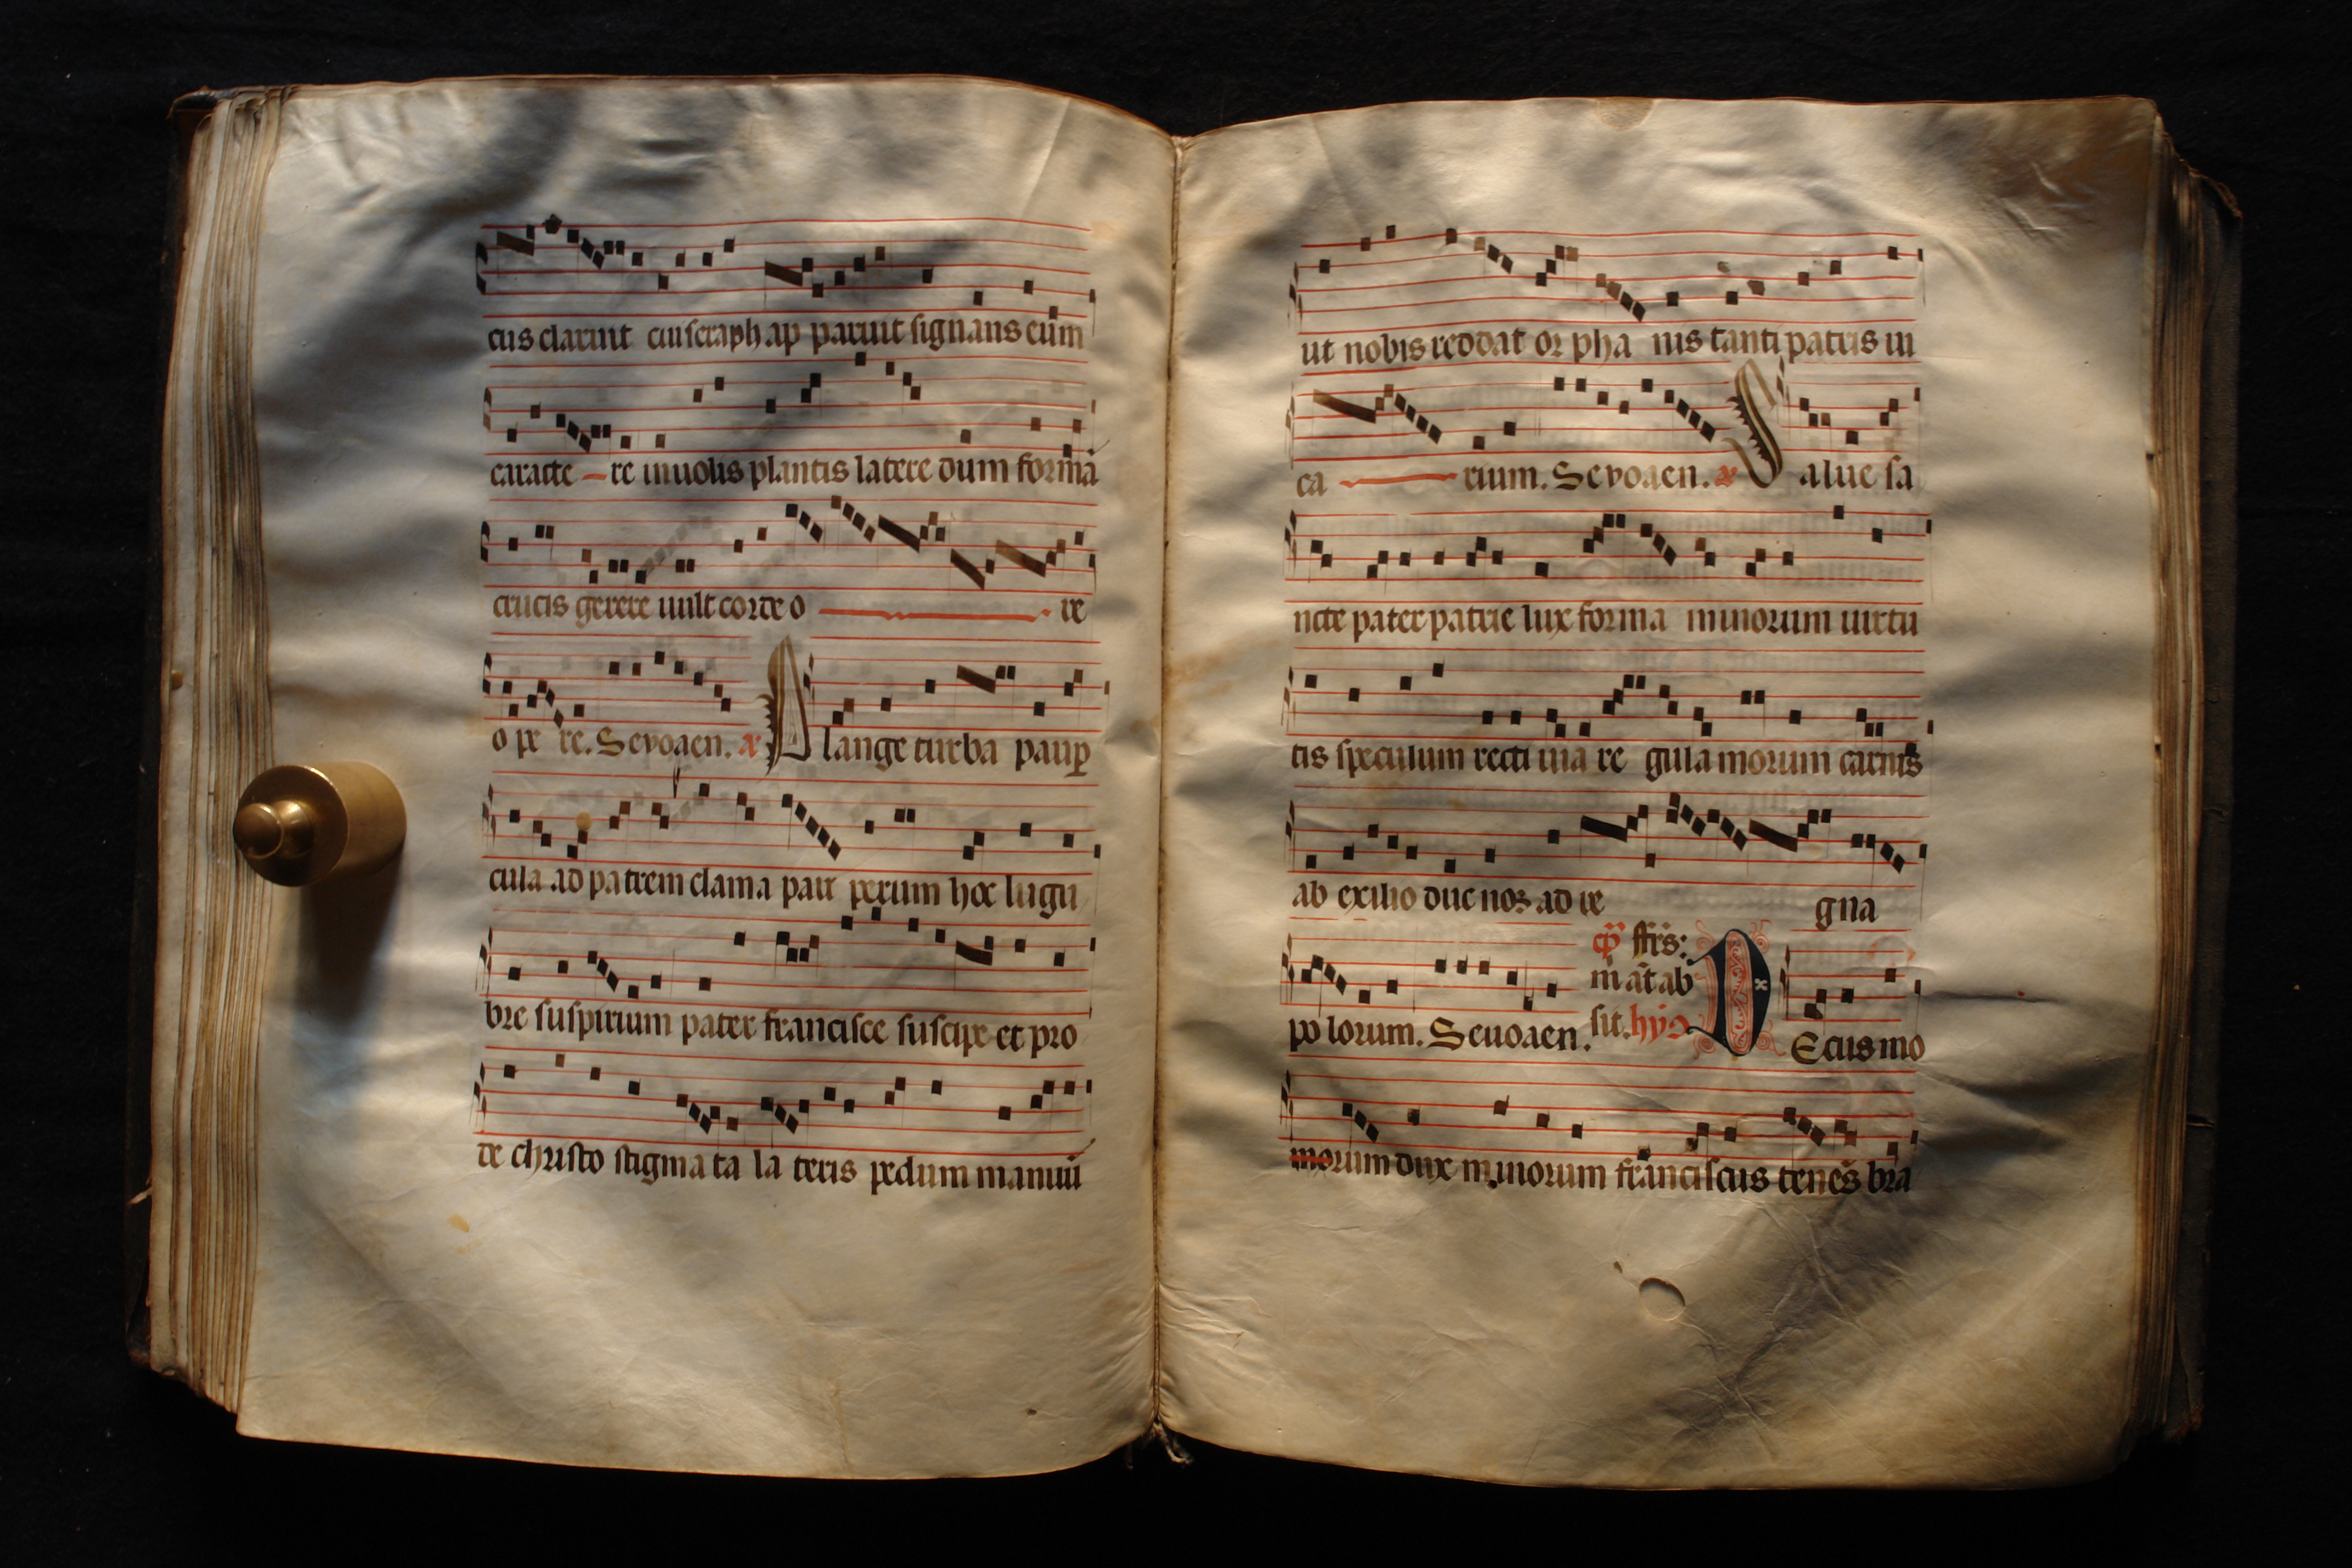 cus claruit cui seraph ap paruit signans eum
caracte re in uolis plantis latere dum formã
crucis gerere uult corde o re
o pe re. Seuouaen. a Plange turba paup
cula ad patrem clama pau perum hoc lugu
bre suspirium pater francisce suscipe et pro
de christo stigma ta la teris pedum manuũ
ut nobis reddat or pha nis tanti patris ui
ca rium. Seuouaen. a Salue sa
ncte pater patrie lux forma minorum uirtu
tis speculum recti uia re gula morum carnis
ab exilio duc nos ad re gna
po lorum. Seuouaen. fr̃s: m̃ at ab sit. hy Decus mo
morum dux minorum franciscus tenes bra